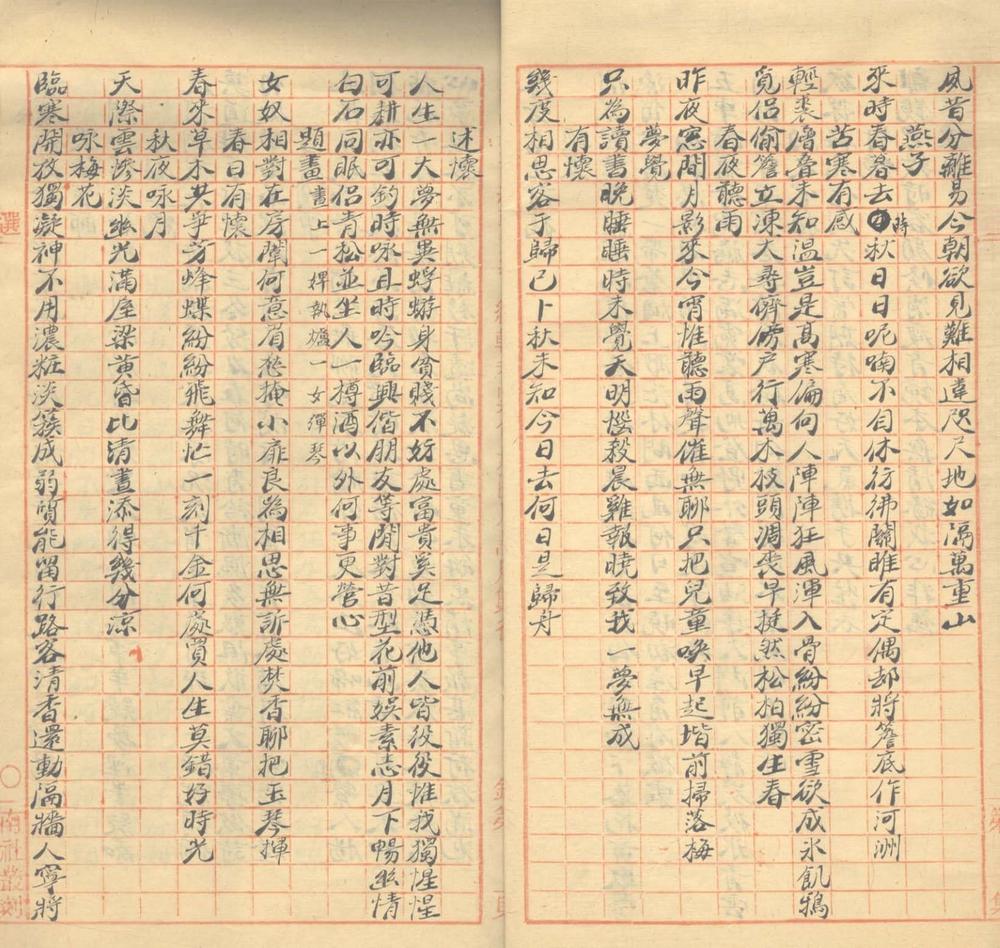 夙昔分離易今朝欲見難相違咫尺地如隔萬重山
燕子
來時春暮去時秋日日呢喃不自休彷彿關雎有定偶却將簷底作河洲
苦寒有感
輕裘層疊未知溫豈是高寒偏向人陣陣狂風渾入骨紛紛密雪欲成氷飢鴉
覓侶偷簷立凍犬尋儕傍户行萬木枝頭凋喪早挺然松柏獨生春
春夜聽雨
昨夜窓間月影來今宵惟聽雨聲催無聊只把兒童喚早起堦前掃落梅
夢覺
只為讀書晚睡睡時未覺天明惱殺晨雞報曉致我一夢無成
有懷
幾度相思容于歸已卜秋未知今日去何日是歸舟
述懷
人生一大夢無異蜉蝣身貧賤不妨處富貴奚足憑他人皆役役惟我獨惺惺
可耕亦可釣時咏且時吟臨興偕朋友等閒對昔型花前娛素志月下暢幽情
白石同眠侶青松並坐人一樽酒以外何事更營心
題畫 畫上一婢執爐一女彈琴
女奴相對在房闈何意眉愁掩小扉良為相思無訴處焚香聊把玉琴揮
春日有懷
春來草木共爭芳蜂蝶紛紛飛舞忙一刻千金何處買人生莫錯好時光
秋夜咏月
天際雲慘淡幽光滿屋梁黃昏比清晝添得幾分涼
咏梅花
臨寒開放獨凝神不用濃粧淡簇成弱質能留行路客清香還動隔牆人寧將
選
南社叢刻